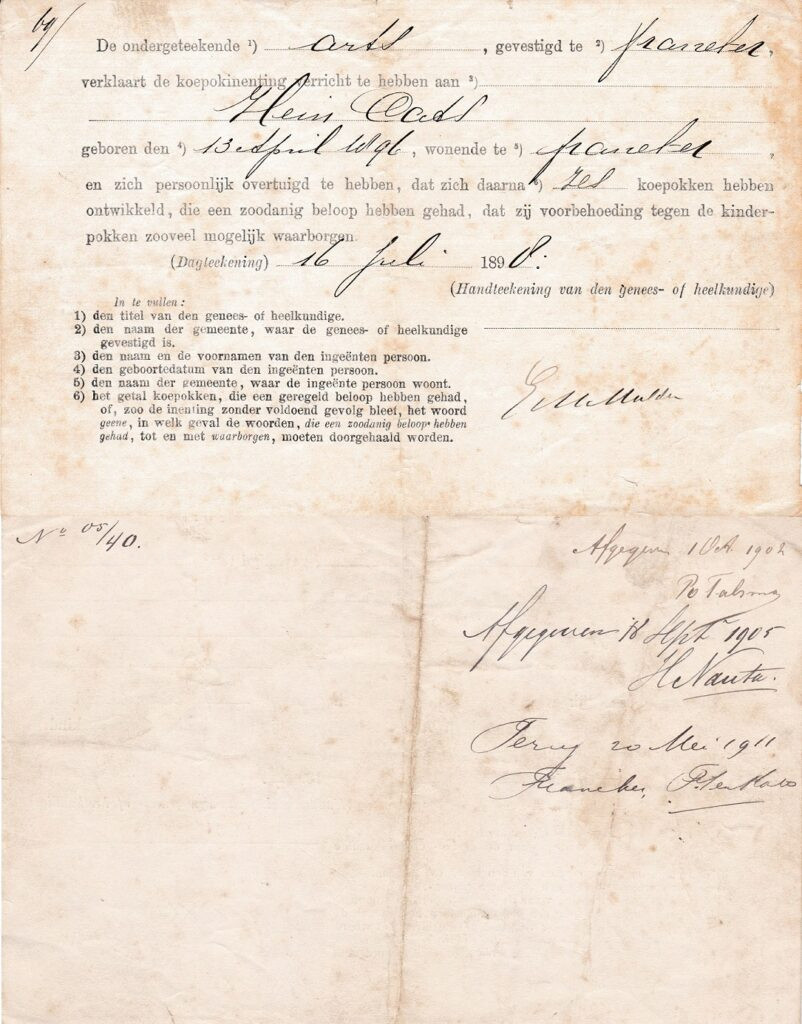 69/
De ondergeteekende ¹) arts, gevestigd te ²) Franeker,
verklaart de koepokinenting verricht te hebben aan ³)
Hein
geboren den ⁴) 13 April 1896, wonende te ⁵) Franeker,
en zich persoonlijk overtuigd te hebben, dat zich daarna ⁶) zes koepokken hebben
ontwikkeld, die een zoodanig beloop hebben gehad, dat zij voorbehoeding tegen de kinder-
pokken zooveel mogelijk waarborgen.
(Dagteekening) 16 Juli 1898.
(Handteekening van den genees- of heelkundige)
In te vullen:
1) den titel van den genees- of heelkundige.
2) den naam der gemeente, waar de genees- of heelkundige
gevestigd is.
3) den naam en de voornamen van den ingeënten persoon.
4) den geboortedatum van den ingeënten persoon.
5) den naam der gemeente, waar de ingeënte persoon woont.
6) het getal koepokken, die een geregeld beloop hebben gehad,
of, zoo de inenting zonder voldoend gevolg bleef, het woord
geene, in welk geval de woorden, die een zoodanig beloop hebben
gehad, tot en met waarborgen, moeten doorgehaald worden.
Mulder
No 05/40.
Afgegeven 1 Oct 1902
Talsma
Afgegeven 18 Sept 1905
H Nauta.
Terug 20 Mei 1911
Franeker, P. ten Kate